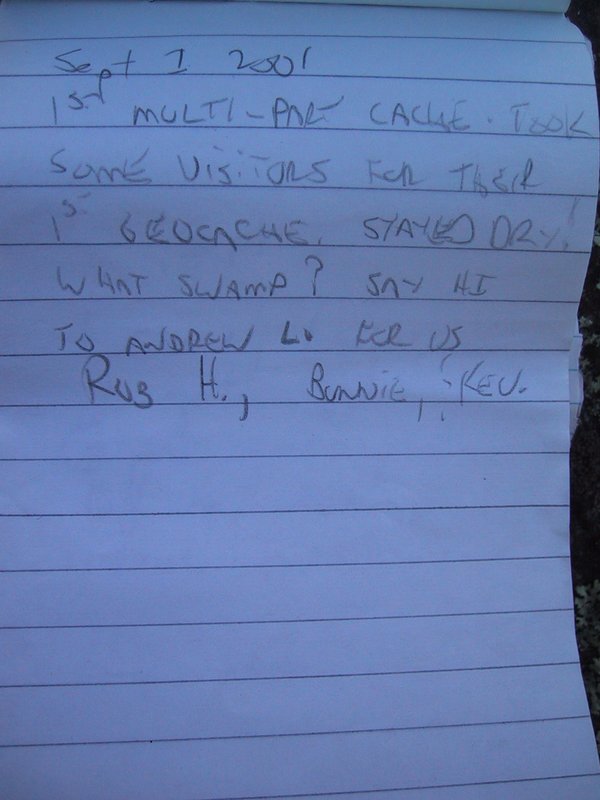 Sept 1 2001
1st MULTI-PART CACHE. TOOK
SOME VISITORS FOR THEIR
1st GEOCACHE. STAYED DRY!
WHAT SWAMP? SAY HI
TO ANDREW L. FOR US
ROB H., BONNIE, KEV.